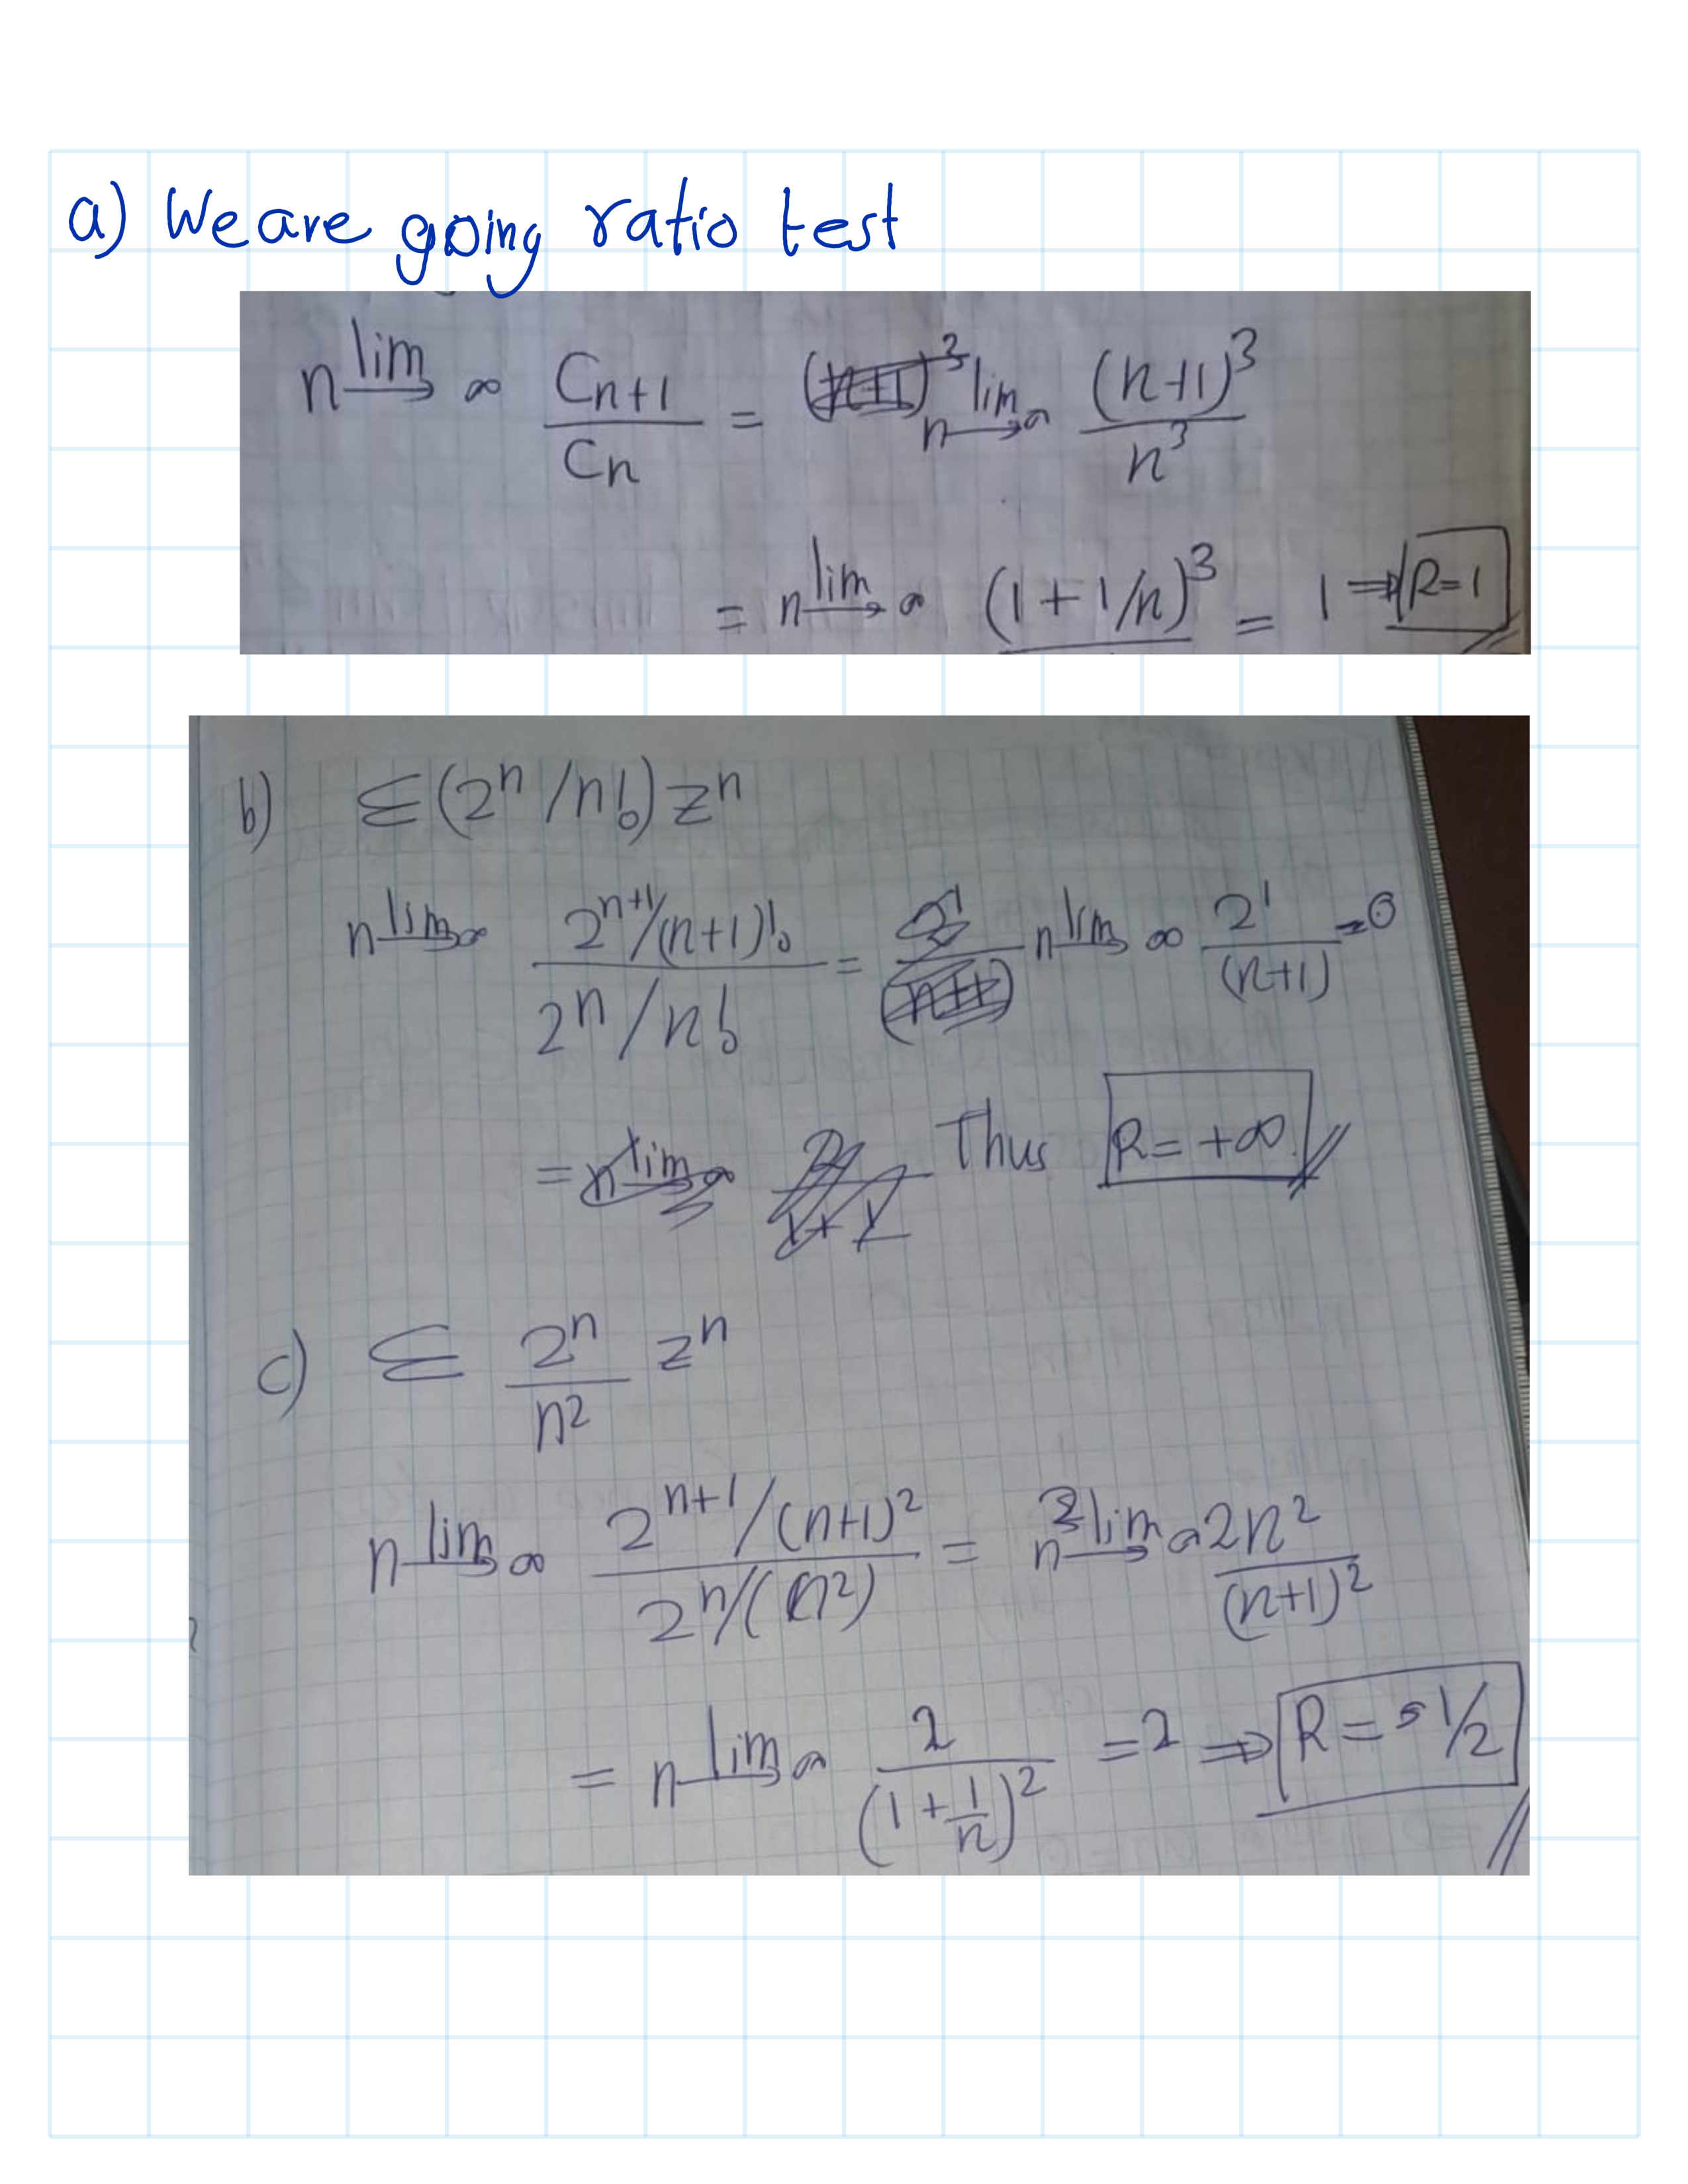 a) We are going ratio test
n lim→ ∞ Cn+1 / Cn = lim n→∞ (n+1)³ / n³
= n lim→ ∞ (1 + 1/n)³ = 1 ⇒ R=1
b) Σ (2ⁿ / n!) zⁿ
n lim→ ∞ 2ⁿ⁺¹/(n+1)! / 2ⁿ / n! = n lim→ ∞ 2¹ / (n+1) = 0
= Thus R = +∞
c) Σ 2ⁿ / n² zⁿ
n lim→ ∞ 2ⁿ⁺¹/(n+1)² / 2ⁿ/(n²) = n lim→ ∞ 2n² / (n+1)²
= n lim→ ∞ 2 / (1 + 1/n)² = 2 ⇒ R = 1/2